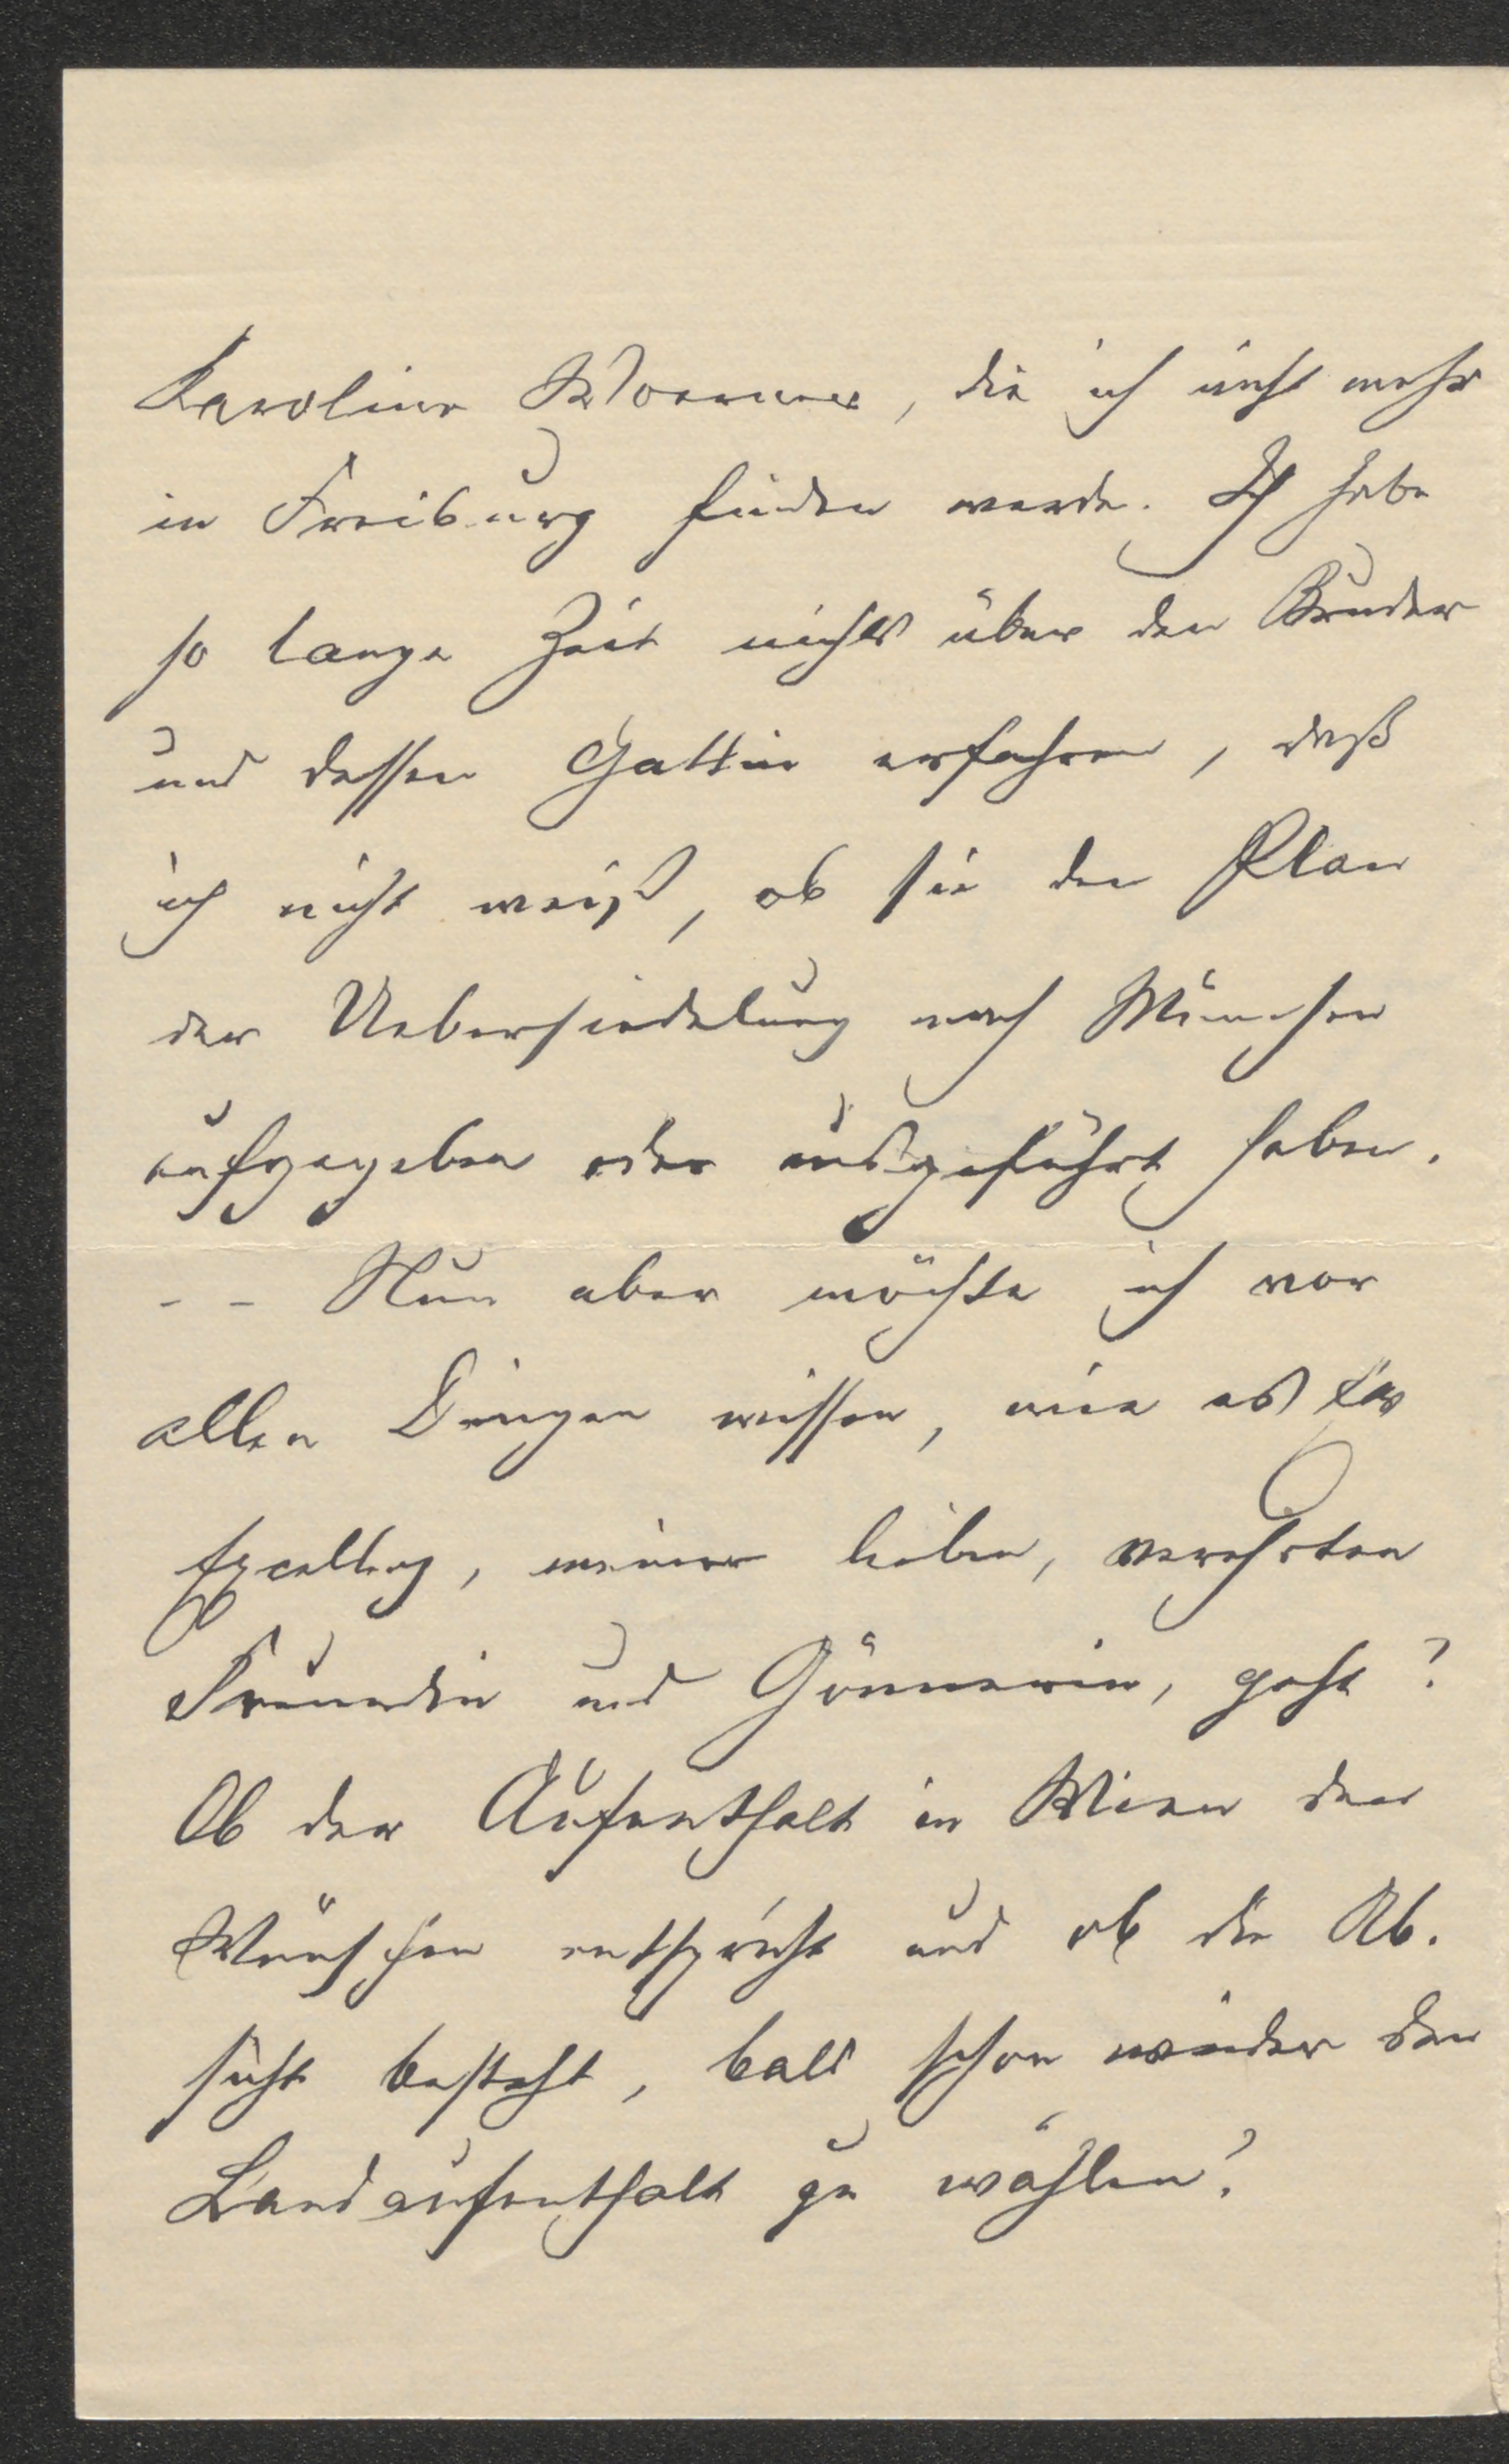 Karoline Woerner, die ich nicht mehr
in Freiburg finden werde. Ich habe
so lange Zeit nichts über den Bruder
und dessen Gattin erfahren, daß
ich nicht weiß, ob sie den Plan
der Uebersiedelung nach München
aufgegeben oder ausgeführt haben.
-- Nun aber möchte ich vor
allen Dingen wissen, wie es Ew
Excellenz, meiner lieben, verehrten
Freundin und Gönnerin, geht?
Ob der Aufenthalt in Wien den
Wünschen entspricht und ob die Ab-
sicht besteht, bald schon wieder den
Landaufenthalt zu wählen?